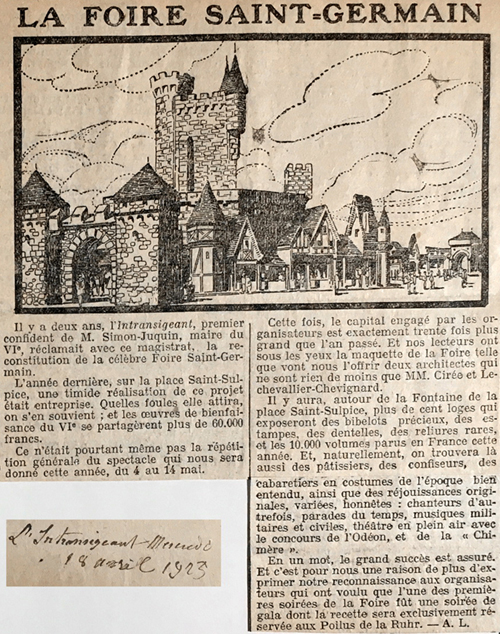 LA FOIRE SAINT=GERMAIN
Il y a deux ans, l'Intransigeant, premier
confident de M. Simon-Juquin, maire du
VIe, réclamait avec ce magistrat, la re-
constitution de la célèbre Foire Saint-Ger-
main.
L'année dernière, sur la place Saint-Sul-
pice, une timide réalisation de ce projet
était entreprise. Quelles foules elle attira,
on s'en souvient ; et les œuvres de bienfai-
sance du VIe se partagèrent plus de 60.000
francs.
Ce n'était pourtant même pas la répéti-
tion générale du spectacle qui nous sera
donné cette année, du 4 au 14 mai.
Cette fois, le capital engagé par les or-
ganisateurs est exactement trente fois plus
grand que l'an passé. Et nos lecteurs ont
sous les yeux la maquette de la Foire telle
que vont nous l'offrir deux architectes qui
ne sont rien de moins que MM. Cirée et Le-
chevallier-Chevignard.
Il y aura, autour de la Fontaine de la
place Saint-Sulpice, plus de cent loges qui
exposeront des bibelots précieux, des es-
tampes, des dentelles, des reliures rares,
et les 10.000 volumes parus en France cette
année. Et, naturellement, on trouvera là
aussi des pâtissiers, des confiseurs, des
cabaretiers en costumes de l'époque bien
entendu, ainsi que des réjouissances origi-
nales, variées, honnêtes : chanteurs d'au-
trefois, parades du temps, musiques mili-
taires et civiles, théâtre en plein air avec
le concours de l'Odéon, et de la « Chi-
mère ».
En un mot, le grand succès est assuré.
Et c'est pour nous une raison de plus d'ex-
primer notre reconnaissance aux organisa-
teurs qui ont voulu que l'une des premiè-
res soirées de la Foire fût une soirée de
gala dont la recette sera exclusivement ré-
servée aux Poilus de la Ruhr. — A. L.
L'Intransigeant - Mercredi
18 avril 1923